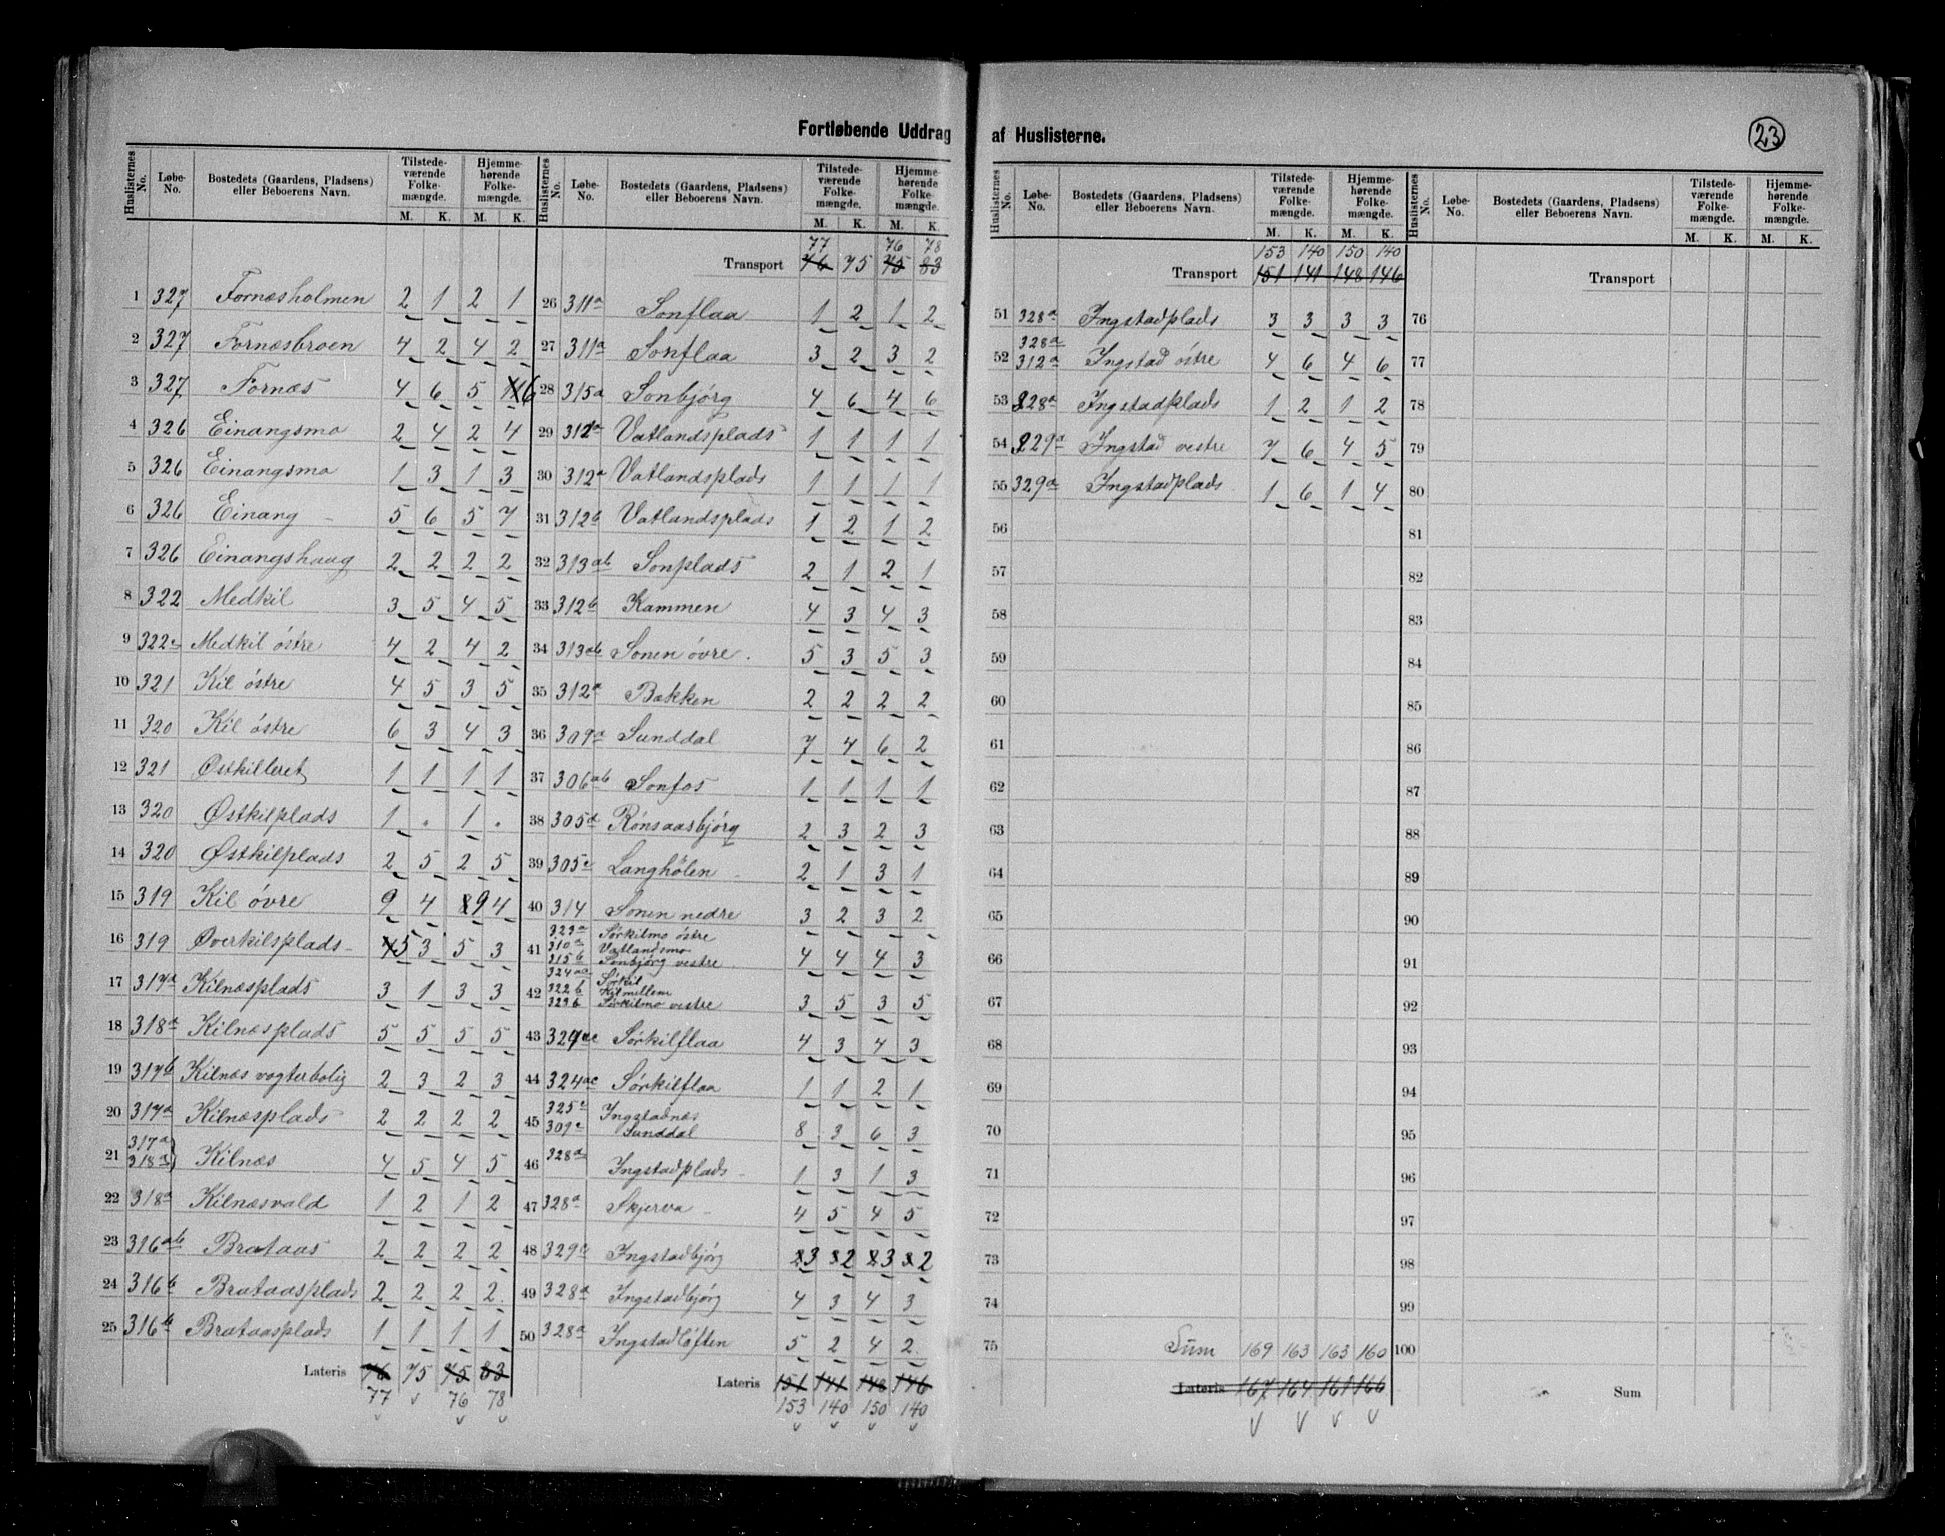 Fortløbende Uddrag af Huslisterne.
23
Huslisternes No. Løbe-No. Bostedets (Gaardens, Pladsens) eller Beboerens Navn. Tilstedeværende Folkemængde. M. K. Hjemmehørende Folkemængde. M. K.
1 327 Fornæsholmen 2 1 2 1
2 327 Fornæsbroen 4 2 4 2
3 327 Fornæs 4 6 5 6
4 326 Einangsmo 2 4 2 4
5 326 Einangsmo 1 3 1 3
6 326 Einang 5 6 5 7
7 326 Einangshaug 2 2 2 2
8 322 Medkil 3 5 4 5
9 322c Medkil östre 4 2 4 2
10 321 Kil östre 4 5 3 5
11 320 Kil östre 6 3 4 3
12 321 Østkilleret 1 1 1 1
13 320 Østkilplads 1 . 1 .
14 320 Østkilplads 2 5 2 5
15 319 Kil övre 9 4 9 4
16 319 Øverkilsplads 5 3 5 3
17 317a Kilnæsplads 3 1 3 3
18 318a Kilnæsplads 5 5 5 5
19 317b Kilnæs vogterbolig 2 3 2 3
20 317a Kilnæsplads 2 2 2 2
21 317a 318a Kilnæs 4 5 4 5
22 318a Kilnæsvald 1 2 1 2
23 316ab Brataas 2 2 2 2
24 316b Brataasplads 2 2 2 2
25 316b Brataasplads 1 1 1 1
Lateris 76 75 75 83
77 76 78
Huslisternes No. Løbe-No. Bostedets (Gaardens, Pladsens) eller Beboerens Navn. Tilstedeværende Folkemængde. M. K. Hjemmehørende Folkemængde. M. K.
77 76 78
Transport 76 75 75 83
26 311a Sonflaa 1 2 1 2
27 311a Sonflaa 3 2 3 2
28 315a Sonbjörg 4 6 4 6
29 312a Vatlandsplads 1 1 1 1
30 312a Vatlandsplads 1 1 1 1
31 312b Vatlandsplads 1 2 1 2
32 313ab Sonplads 2 1 2 1
33 312b Kammen 4 3 4 3
34 313ab Sonen övre 5 3 5 3
35 312a Bakken 2 2 2 2
36 309a Sunddal 7 4 6 2
37 306ab Sonfos 1 1 1 1
38 305d Rönsaasbjörg 2 3 2 3
39 305c Langhölen 2 1 3 1
40 314 Sonen nedre 3 2 3 2
323a Sörkilmo östre
41 310a Vatlandsmo
315b Sonbjörg vestre 4 4 4 3
324ac Sörkil
42 322b Kilmellem
323b Sörkilmo vestre 3 5 3 5
43 324ac Sörkilflaa 4 3 4 3
44 324ac Sörkilflaa 1 1 2 1
325c Ingstadnæs
45 309c Sunddal 8 3 6 3
46 328a Ingstadplads 1 3 1 3
47 328a Skjerva 4 5 4 5
48 329a Ingstadbjörg 3 2 3 2
49 328a Ingstadbjörg 4 3 4 3
50 328a Ingstadlöften 5 2 4 2
Lateris 151 141 148 146
153 140 150 140
Huslisternes No. Løbe-No. Bostedets (Gaardens, Pladsens) eller Beboerens Navn. Tilstedeværende Folkemængde. M. K. Hjemmehørende Folkemængde. M. K.
153 140 150 140
Transport 151 141 148 146
51 328a Ingstadplads 3 3 3 3
328a
52 312a Ingstad östre 4 6 4 6
53 328a Ingstadplads 1 2 1 2
54 329a Ingstad vestre 7 6 4 5
55 329a Ingstadplads 1 6 1 4
56
57
58
59
60
61
62
63
64
65
66
67
68
69
70
71
72
73
74
75 Sum 169 163 163 160
Lateris 167 164 161 166
Huslisternes No. Løbe-No. Bostedets (Gaardens, Pladsens) eller Beboerens Navn. Tilstedeværende Folkemængde. M. K. Hjemmehørende Folkemængde. M. K.
Transport
76
77
78
79
80
81
82
83
84
85
86
87
88
89
90
91
92
93
94
95
96
97
98
99
100
Sum